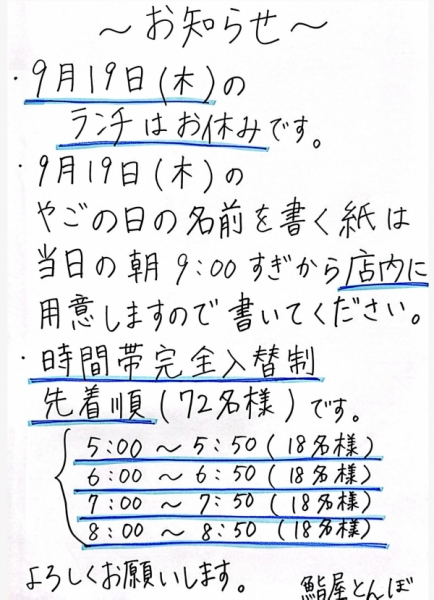 ～お知らせ～
・9月19日(木)の
ランチはお休みです。
・9月19日(木)の
やごの日の名前を書く紙は
当日の朝9:00すぎから店内に
用意しますので書いてください。
・時間帯完全入替制
先着順(72名様)です。
5:00～5:50(18名様)
6:00～6:50(18名様)
7:00～7:50(18名様)
8:00～8:50(18名様)
よろしくお願いします。
鮨屋とんぼ